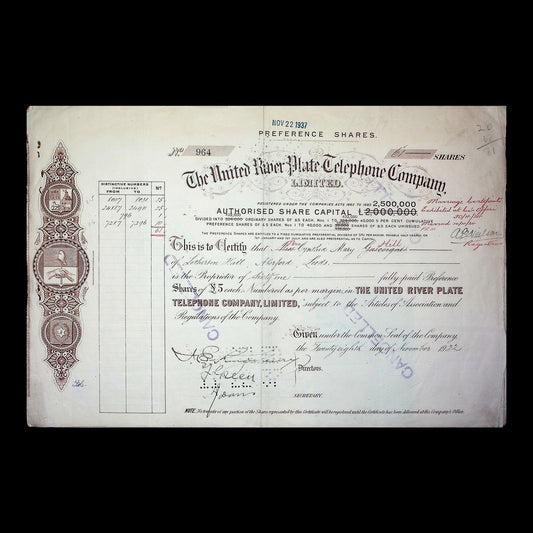 NOV 22 1937
PREFERENCE SHARES.
No 964
61 SHARES
The United River Plate Telephone Company,
LIMITED.
REGISTERED UNDER THE COMPANIES ACTS 1862 TO 1883
2,500,000
AUTHORISED SHARE CAPITAL £2,000,000
DIVIDED INTO ORDINARY SHARES OF £5 EACH, Nos 1 TO 40,000 5 PER CENT. CUMULATIVE
PREFERENCE SHARES OF £5 EACH, Nos 1 TO 40,000 AND SHARES OF £5 EACH UNISSUED
THE PREFERENCE SHARES ARE ENTITLED TO A FIXED CUMULATIVE PREFERENTIAL DIVIDEND OF 5% PER ANNUM, PAYABLE HALF-YEARLY, ON
OF JANUARY AND 1ST JULY AND ARE ALSO PREFERENTIAL AS TO CAPITAL
Marriage Certificate
Exhibited at this Office
Registrar
DISTINCTIVE NUMBERS
(INCLUSIVE)
FROM TO No
61
This is to Certify that Mrs Cynthia Mary Gascoigne
of Lotherton Hall Aberford Leeds
is the Proprietor of Sixty one fully paid Preference
Shares of £5 each, Numbered as per margin, in THE UNITED RIVER PLATE
TELEPHONE COMPANY, LIMITED, subject to the Articles of Association and
Regulations of the Company.
CANCELLED
CANCELLED
Given under the Common Seal of the Company
the Twenty eighth day of November 1922
Directors.
SECRETARY.
NOTE: No transfer of any portion of the Shares represented by this Certificate will be registered until the Certificate has been delivered at the Company's Office.